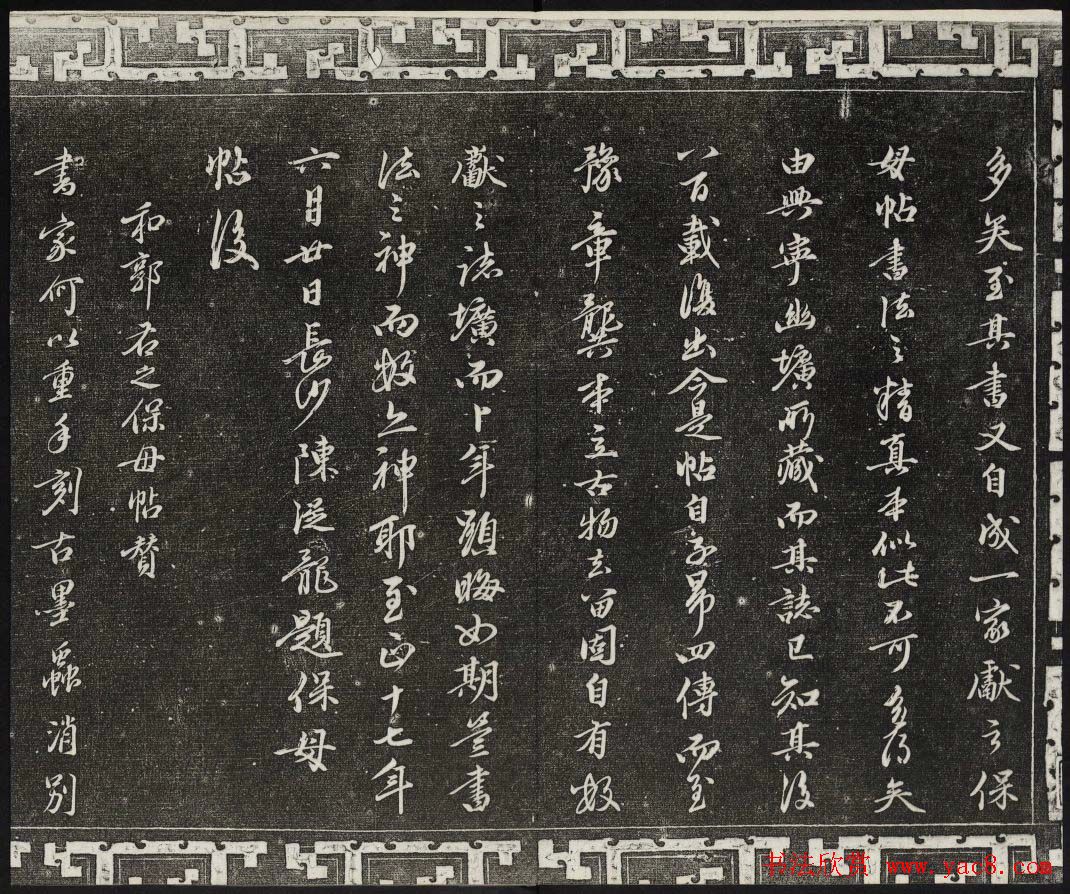 多矣至其書又自成一家獻之保
母帖書法之精真本似此不可多得矣
由興寧幽壙所藏而其誌已知其後
八百載復出今是帖自子昂四傳而至
豫章龔本立古物去留固自有數
獻之誌壙而卜年顯晦如期豈書
法之神而數亦神耶至正十七年
六月廿日長沙陳從龍題保母
帖後
和郭右之保母帖贊
書家何以重手刻古墨蟲消別
书法欣赏 www.yac8.com